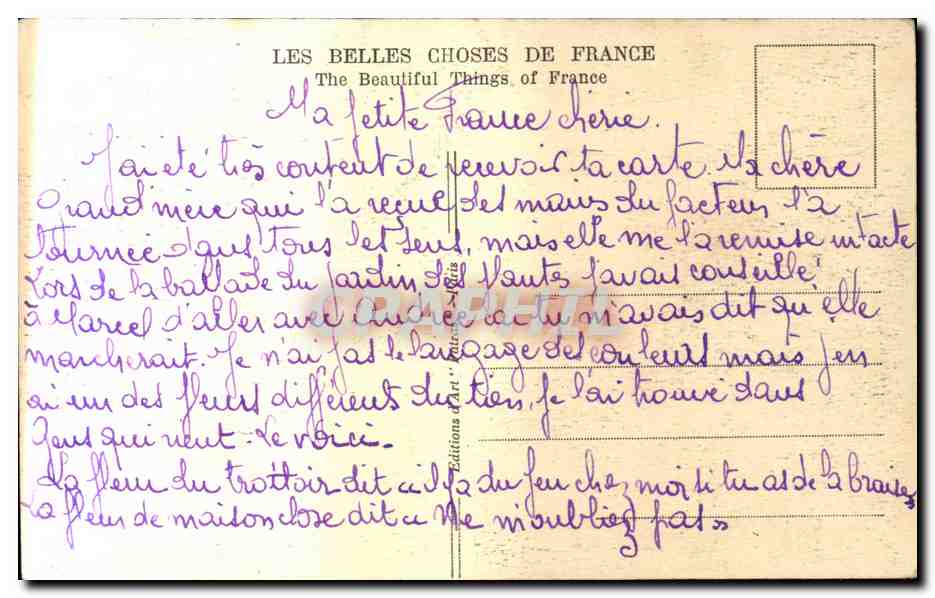 LES BELLES CHOSES DE FRANCE
The Beautiful Things of France
Ma petite France chérie.
J'ai été très content de recevoir ta carte. Ma chère
Grand mère qui l'a reçue des mains du facteur l'a
tournée dans tous les sens, mais elle me l'a remise intacte
Lors de la ballade du jardin des Plantes j'avais conseillé
à Marcel d'aller avec Andrée car tu m'avais dit qu'elle
marcherait. Je n'ai pas le langage des couleurs mais j'en
ai un des fleurs différent du tien, je l'ai trouvé dans
Gens qui rient. Le voici.
La fleur du trottoir dit « il y a du feu chez moi si tu as de la braise»
La fleur de maison close dit « Ne m'oubliez pas »
Editions d'Art
Paris
CPAPHIL